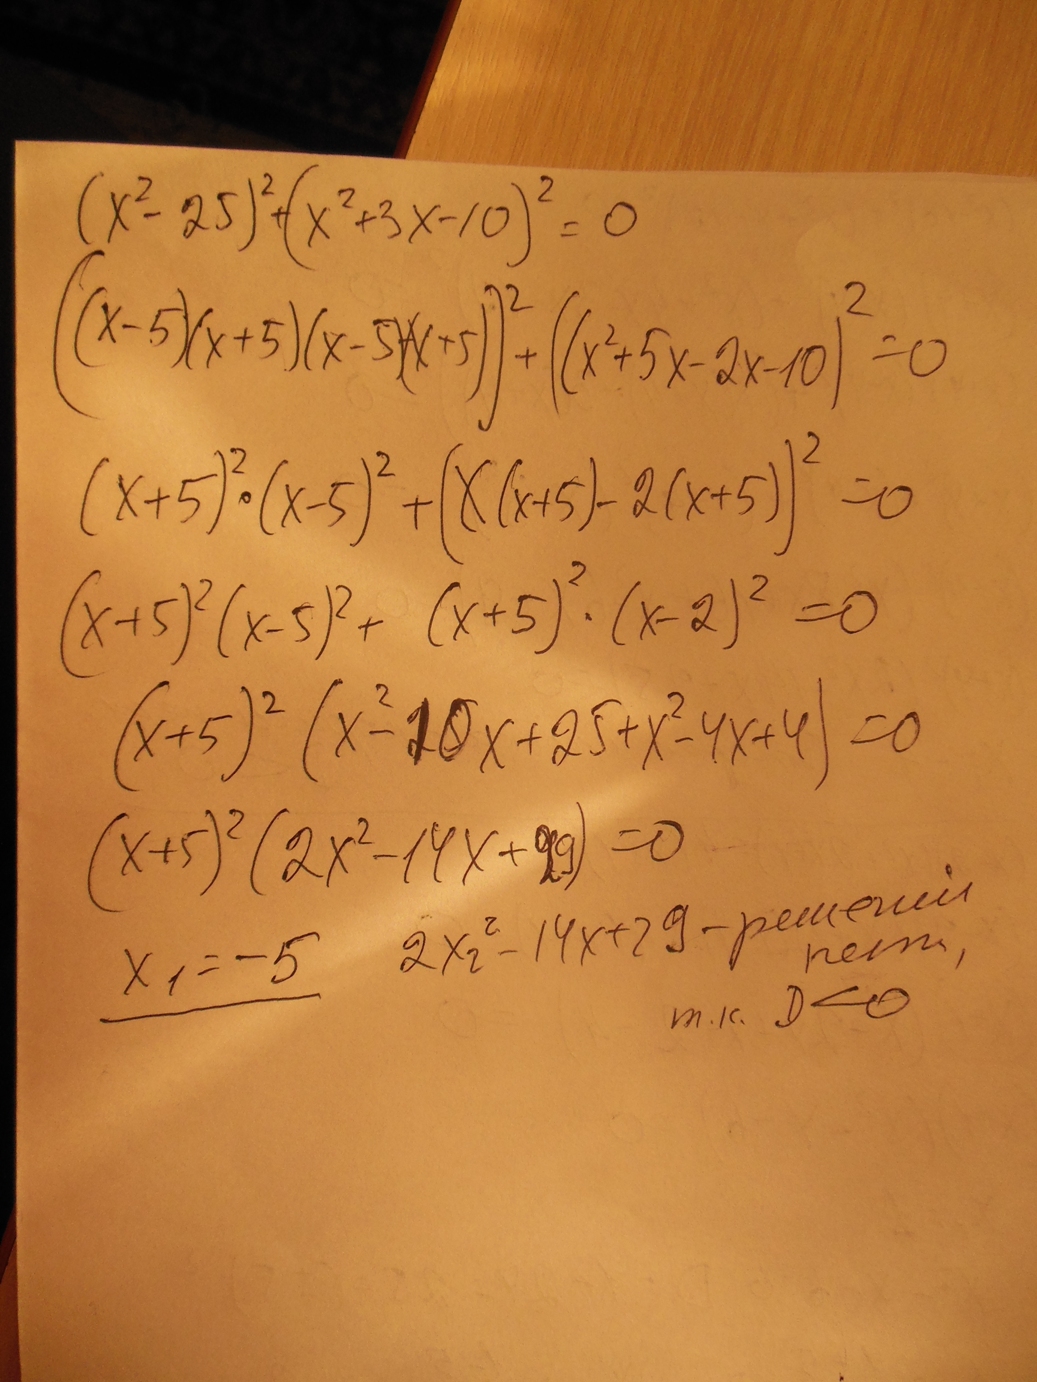 (x²-25)²+(x²+3x-10)²=0
((x-5)(x+5)(x-5)(x+5))²+((x²+5x-2x-10)²=0
(x+5)²·(x-5)²+(x(x+5)-2(x+5))²=0
(x+5)²(x-5)²+ (x+5)²·(x-2)²=0
(x+5)²(x²-10x+25+x²-4x+4)=0
(x+5)²(2x²-14x+29)=0
x₁=-5 2x₂²-14x+29-решений
нет,
т.к. D<0